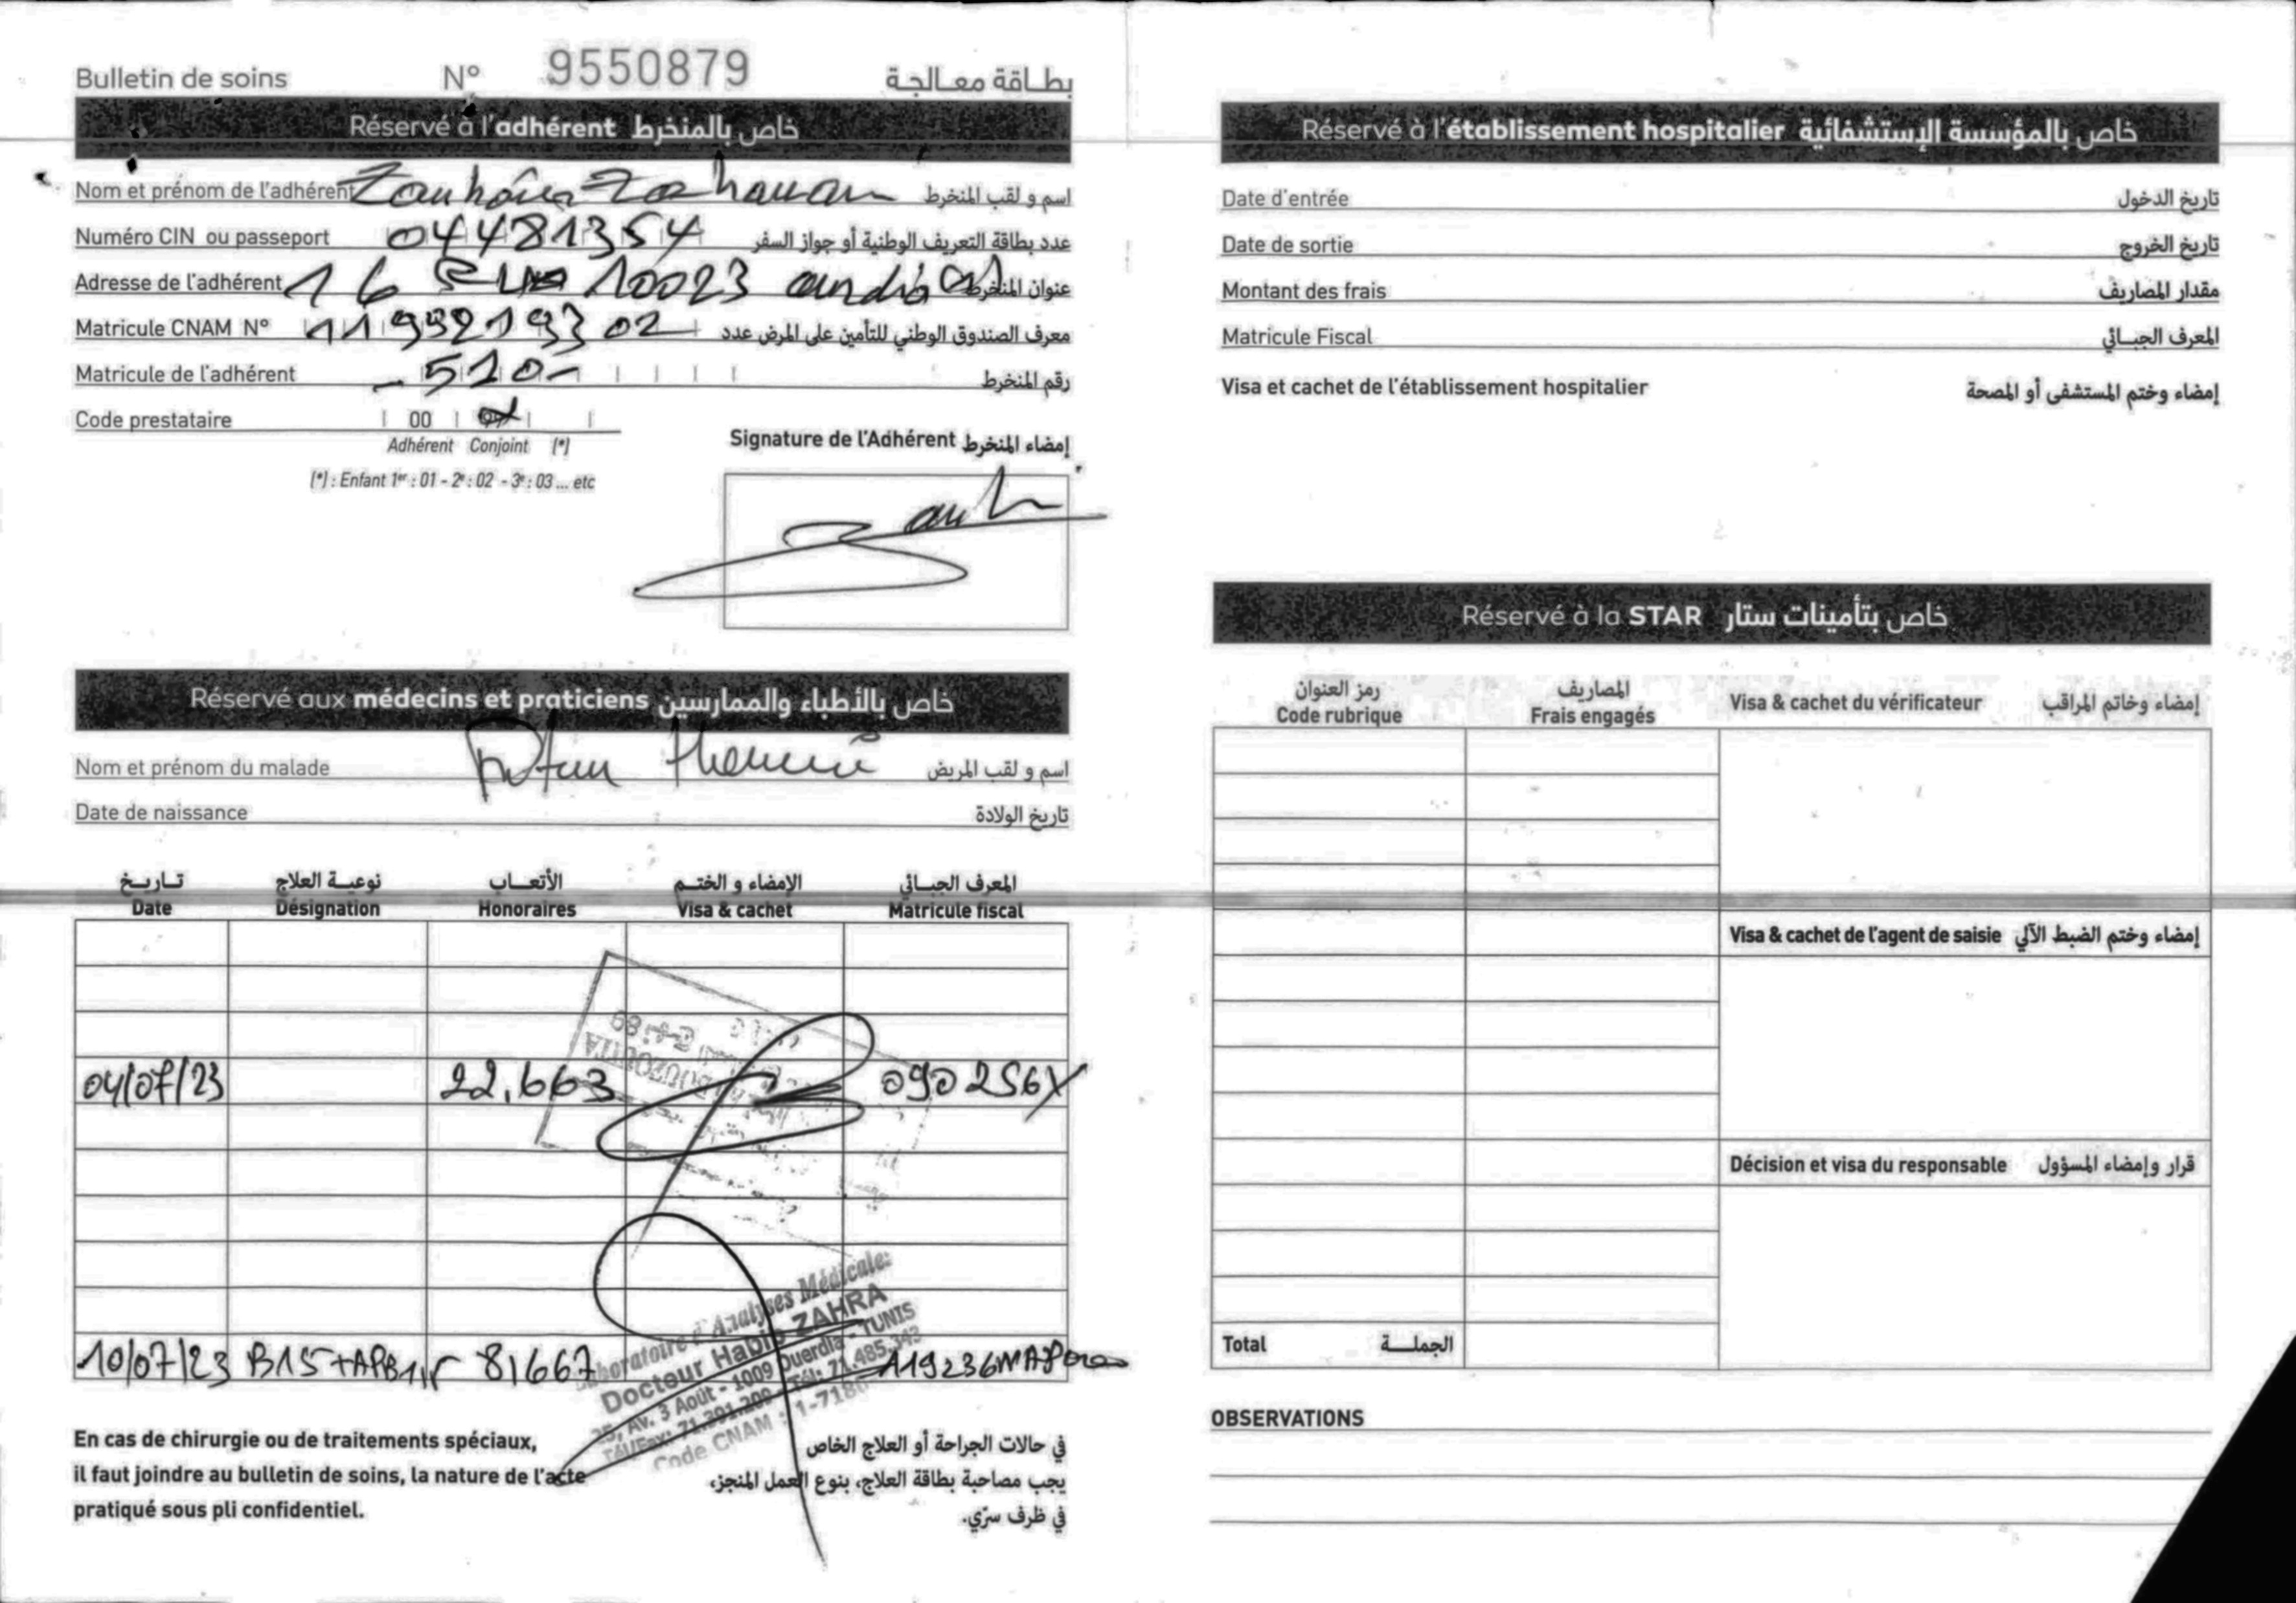 Bulletin de soins N° 9550879 بطاقة معالجة
Réservé à l'adhérent خاص بالمنخرط
Nom et prénom de l'adhérent اسم و لقب المنخرط
Numéro CIN ou passeport 04481354 عدد بطاقة التعريف الوطنية أو جواز السفر
Adresse de l'adhérent 16 Rue 10023 عنوان المنخرط
Matricule CNAM N° معرف الصندوق الوطني للتأمين على المرض عدد
Matricule de l'adhérent - 510 - رقم المنخرط
Code prestataire 00
Adhérent Conjoint (*)
(*) : Enfant 1er : 01 - 2e : 02 - 3e : 03 ... etc
Signature de l'Adhérent إمضاء المنخرط
Réservé aux médecins et praticiens خاص بالأطباء والممارسين
Nom et prénom du malade اسم و لقب المريض
Date de naissance تاريخ الولادة
تاريخ نوعية العلاج الأتعاب الإمضاء و الختم المعرف الجبائي
Date Désignation Honoraires Visa & cachet Matricule fiscal
04/07/23 22,663 090256Y
10/07/23 81667
Laboratoire d'Analyses Médicales
Docteur Habib ZAHRA
25, Av. 3 Août - 1009 Ouerdia - TUNIS
Tél/Fax: 71.391.200 - Tél: 71.485.343
Code CNAM : 1-7180
En cas de chirurgie ou de traitements spéciaux,
il faut joindre au bulletin de soins, la nature de l'acte
pratiqué sous pli confidentiel.
في حالات الجراحة أو العلاج الخاص
يجب مصاحبة بطاقة العلاج، بنوع العمل المنجز،
في ظرف سرّي.
Réservé à l'établissement hospitalier خاص بالمؤسسة الإستشفائية
Date d'entrée تاريخ الدخول
Date de sortie تاريخ الخروج
Montant des frais مقدار المصاريف
Matricule Fiscal المعرف الجبائي
Visa et cachet de l'établissement hospitalier إمضاء وختم المستشفى أو المصحة
Réservé à la STAR خاص بتأمينات ستار
رمز العنوان المصاريف
Code rubrique Frais engagés Visa & cachet du vérificateur إمضاء وخاتم المراقب
Visa & cachet de l'agent de saisie إمضاء وختم الضبط الآلي
Décision et visa du responsable قرار وإمضاء المسؤول
Total الجملة
OBSERVATIONS